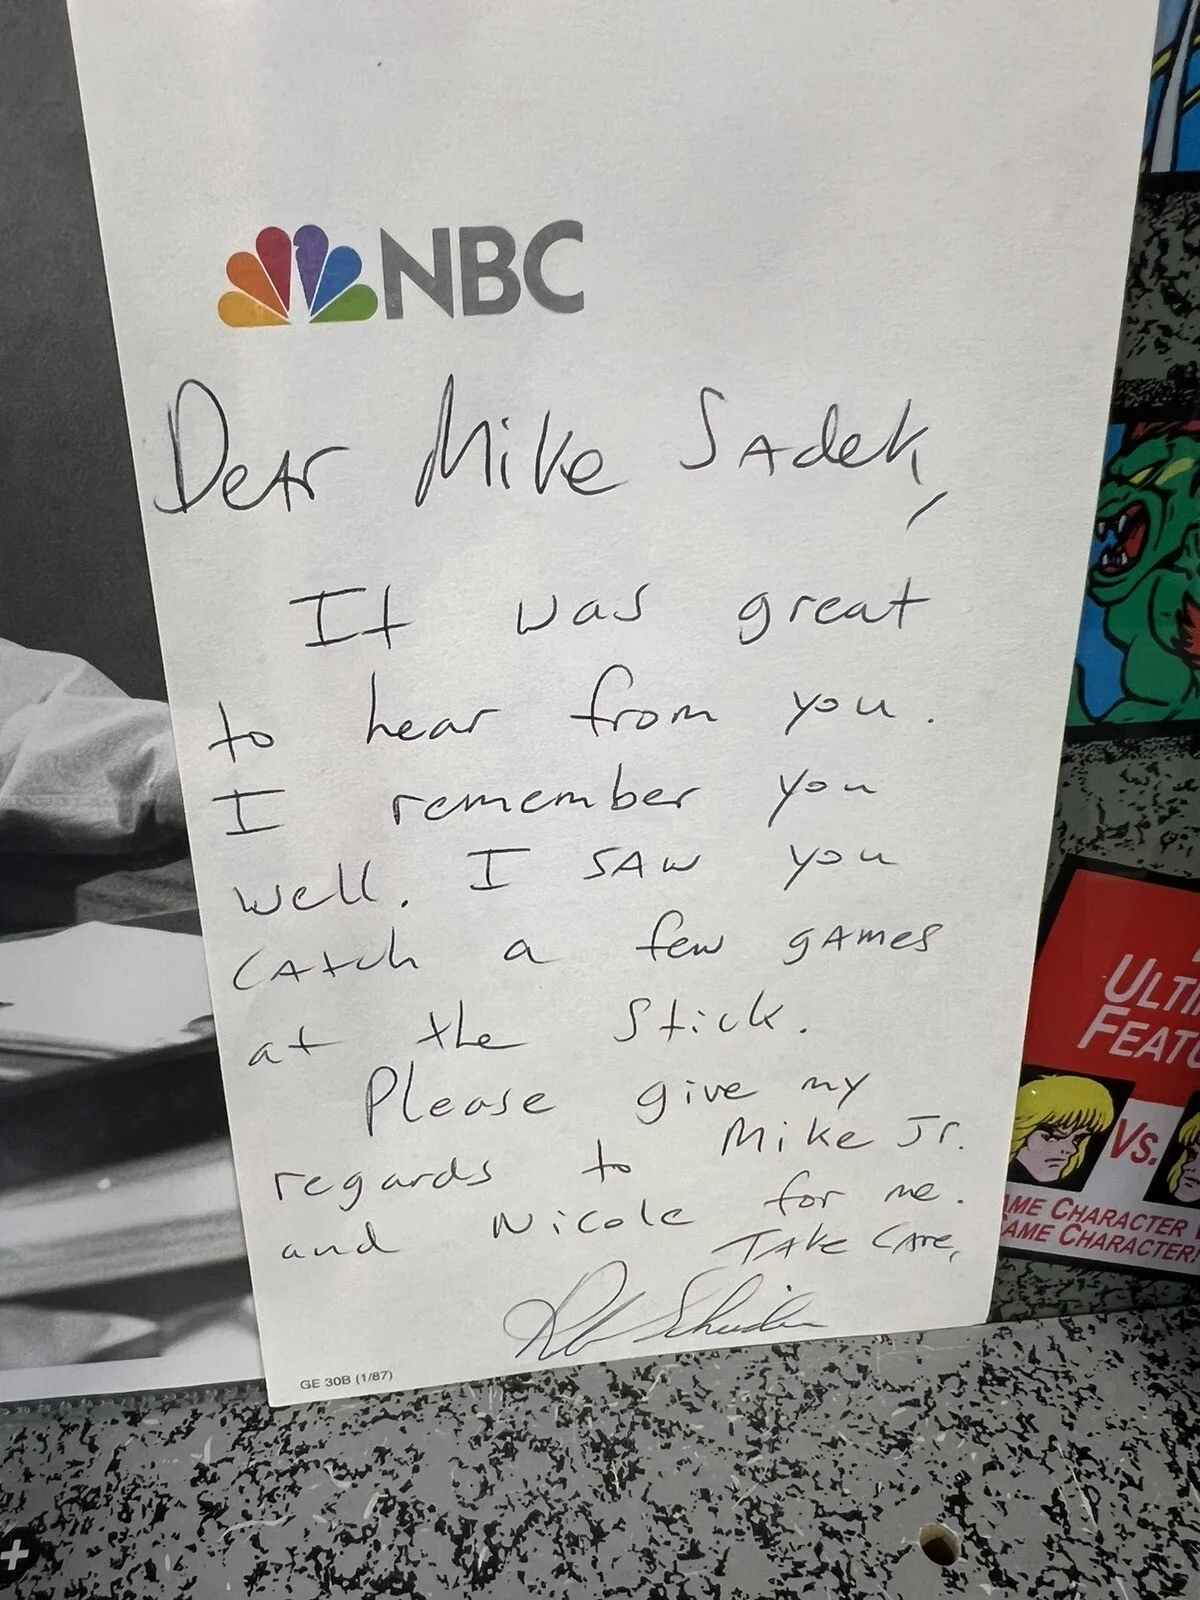 NBC
Dear Mike Sadek,
It was great
to hear from you.
I remember you
well. I saw you
catch a few games
at the Stick.
Please give my
regards to Mike Jr.
and Nicole for me.
Take Care,
Rob Schneider
GE 30B (1/87)
ULTI
FEATU
VS.
AME CHARACTER
AME CHARACTER